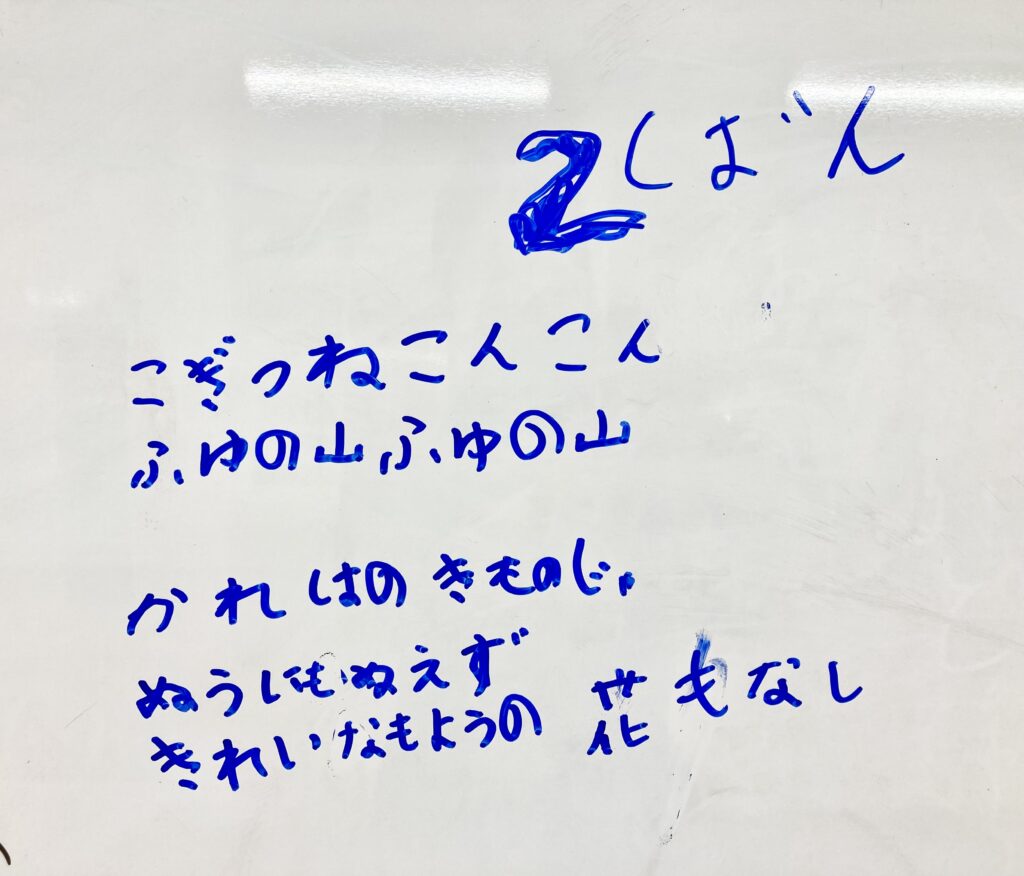 2ばん
こぎつねこんこん
ふゆの山ふゆの山
かれはのきものじゃ
ぬうにもぬえず
きれいなもようの 花もなし